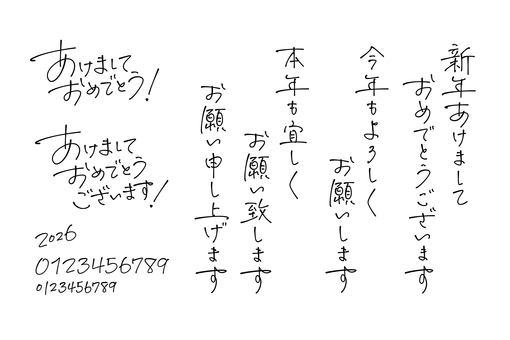 新年あけまして
おめでとうございます
今年もよろしく
お願いします
本年も宜しく
お願い致します
お願い申し上げます
あけまして
おめでとう!
あけまして
おめでとう
ございます!
2026
0123456789
0123456789